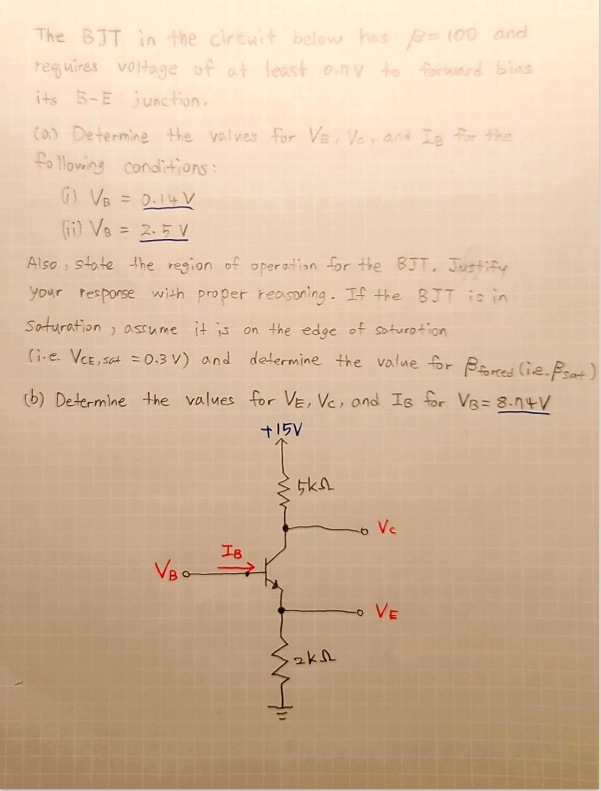 The BJT in the circuit below has β = 100 and
requires voltage of at least 0.7V to forward bias
its B-E junction.
(a) Determine the values for VE, VC, and IB for the
following conditions:
(i) VB = 0.14V
(ii) VB = 2.5 V
Also, state the region of operation for the BJT. Justify
your response with proper reasoning. If the BJT is in
saturation, assume it is on the edge of saturation
(i.e. VCE, sat = 0.3 V) and determine the value for βforced (i.e. βsat)
(b) Determine the values for VE, VC, and IB for VB = 8.74V
+15V
5kΩ
VC
IB
VB
VE
2kΩ